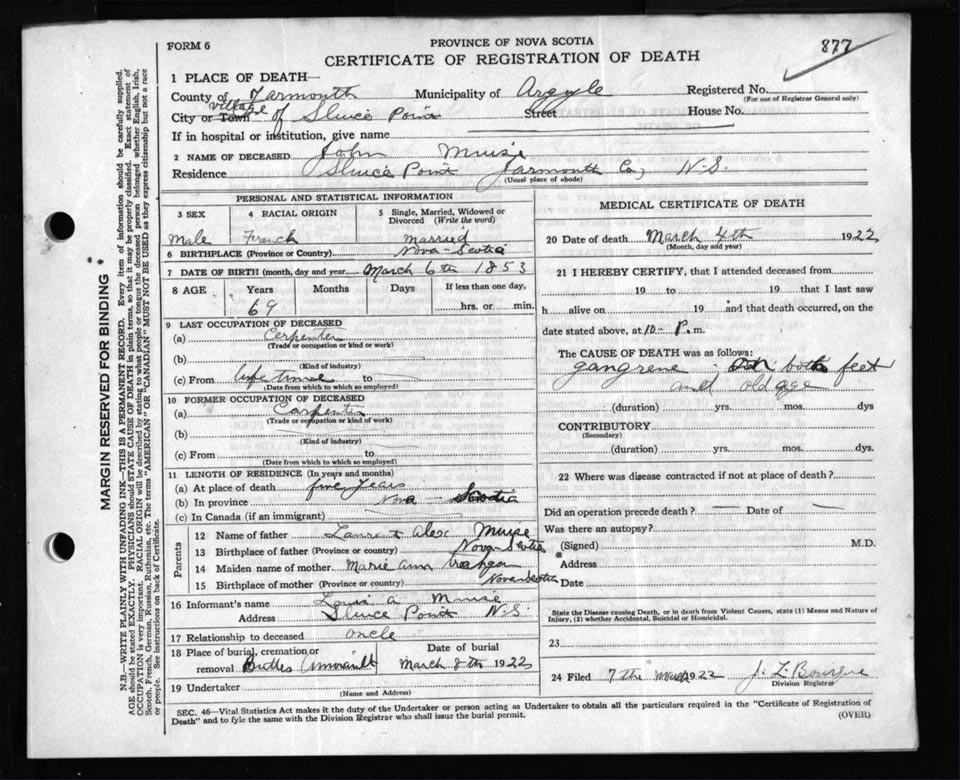 FORM 6
PROVINCE OF NOVA SCOTIA
877
CERTIFICATE OF REGISTRATION OF DEATH
1 PLACE OF DEATH—
County of Yarmouth Municipality of Argyle Registered No.
(For use of Registrar General only)
City or Town village of Sluice Point Street House No.
If in hospital or institution, give name
2 NAME OF DECEASED John Muise
Residence Sluice Point Yarmouth Co, N-S.
(Usual place of abode)
PERSONAL AND STATISTICAL INFORMATION
3 SEX 4 RACIAL ORIGIN 5 Single, Married, Widowed or Divorced (Write the word)
Male French Married
6 BIRTHPLACE (Province or Country) Nova-Scotia
7 DATE OF BIRTH (month, day and year March 6th 1853
8 AGE Years Months Days If less than one day,
69 hrs. or min.
9 LAST OCCUPATION OF DECEASED
(a) Carpenter
(Trade or occupation or kind or work)
(b)
(Kind of industry)
(c) From life time to
(Date from which to which so employed)
10 FORMER OCCUPATION OF DECEASED
(a) Carpenter
(Trade or occupation or kind of work)
(b)
(Kind of industry)
(c) From to
(Date from which to which so employed)
11 LENGTH OF RESIDENCE (In years and months)
(a) At place of death five years
(b) In province Nova-Scotia
(c) In Canada (if an immigrant)
Parents
12 Name of father Laurent Alex Muise
13 Birthplace of father (Province or country) Nova-Scotia
14 Maiden name of mother Marie Ann
15 Birthplace of mother (Province or country) Nova Scotia
16 Informant's name Louis A Muise
Address Sluice Point N.S.
17 Relationship to deceased Uncle
18 Place of burial, cremation or removal Buttes Amirault
Date of burial
March 8th 1922
19 Undertaker
(Name and Address)
MEDICAL CERTIFICATE OF DEATH
20 Date of death March 4th 1922
(Month, day and year)
21 I HEREBY CERTIFY, that I attended deceased from
19 to 19 that I last saw
h alive on 19 and that death occurred, on the
date stated above, at 10- P. m.
The CAUSE OF DEATH was as follows:
gangrene both feet
and old age
(duration) yrs. mos. dys
CONTRIBUTORY
(Secondary)
(duration) yrs. mos. dys.
22 Where was disease contracted if not at place of death?
Did an operation precede death? — Date of —
Was there an autopsy?
(Signed) M.D.
Address
Date
State the Disease causing Death, or in death from Violent Causes, state (1) Means and Nature of Injury, (2) whether Accidental, Suicidal or Homicidal.
23
24 Filed 7 the March 1922 J. L. Bourque
Division Registrar
SEC. 46—Vital Statistics Act makes it the duty of the Undertaker or person acting as Undertaker to obtain all the particulars required in the "Certificate of Registration of
Death" and to fyle the same with the Division Registrar who shall issue the burial permit.
(OVER)
MARGIN RESERVED FOR BINDING
N.B.—WRITE PLAINLY WITH UNFADING INK—THIS IS A PERMANENT RECORD. Every item of information should be carefully supplied.
AGE should be stated EXACTLY. PHYSICIANS should STATE CAUSE OF DEATH in plain terms, so that it may be properly classified. Exact statement of
OCCUPATION is very important. RACIAL ORIGIN will be described by stating to what people or tongue the deceased person belonged whether English, Irish,
Scotch, French, German, Russian, Ruthenian, etc. The terms "AMERICAN" OR "CANADIAN" MUST NOT BE USED as they express citizenship but not a race
or people. See instructions on back of Certificate.